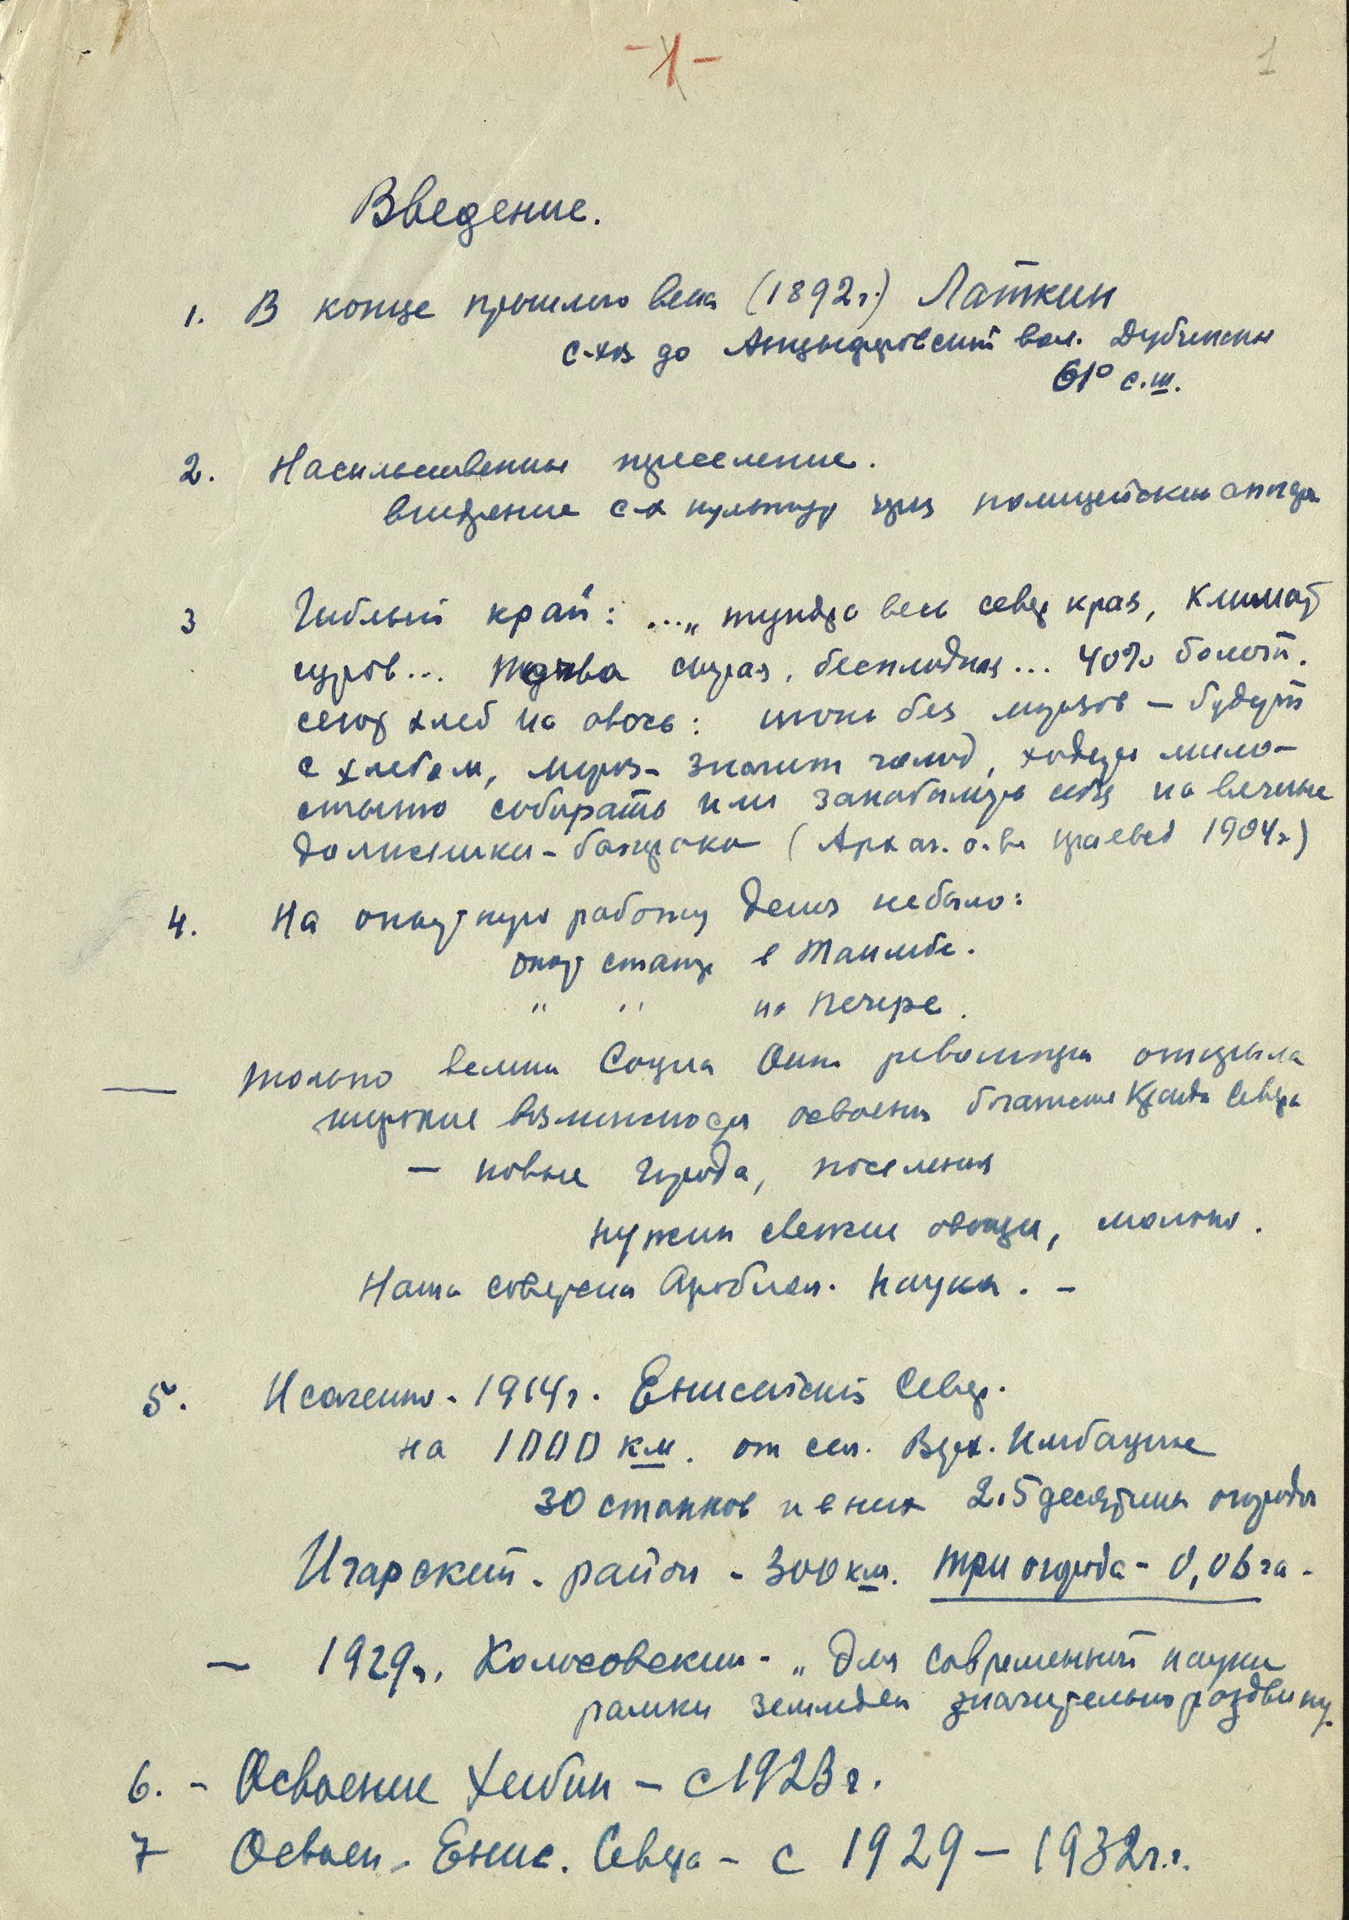 -1-
1
Введение.
1. В конце прошлого века (1892г.) Латкин
с-хоз до Анцыферовский вол. Дубческ
61° с.ш.
2. Насильственные переселение.
внедрение с-х культур через полицейские
3 Гиблый край: ..." тундра весь север края, климат
суров... почва сырая, бесплодная... 40% болот.
сеют хлеб на авось: июнь без морозов — будут
с хлебом, мороз - значит голод, ходи мило-
стыню собирать или закабаляй себя на вечные
должники-батраки (Арханг. о.-ва краевед 1904г)
4. На опытную работу денег не было:
опыт станц в
" " на Печере.
— только велик Социа Окт революция открыла
широкие возможности освоения богатства Крайн Севера
— новые города, поселения
нужны свежие овощи, молоко.
Наша советская Агробиол. наука. -
5. Исаченко - 1914г. Енисейский Север.
на 1000 км. от сел. Верх. Имбацкое
30 станков и в них 2,5 десятины огорода
Игарский - район - 300 км. три огорода - 0,06 га -
— 1929г. Колосовский - „Для современной науки
рамки земледел значительно раздвину
6. - Освоение Хибин - с 1923 г.
7 Освоен. Енис. Севера - с 1929 — 1932г.г.